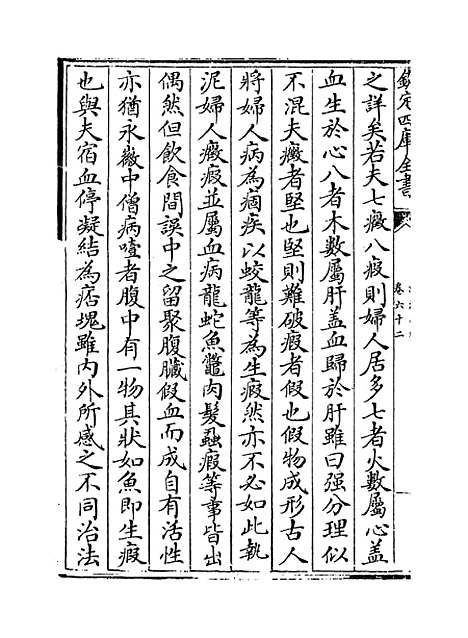 欽定四庫全書
卷六十二
之詳矣若夫七癥八瘕則婦人居多七者火數屬心蓋
血生於心八者木數屬肝盖血歸於肝雖曰强分理似
不混夫癥者堅也堅則難破瘕者假也假物成形古人
將婦人病為痼疾以蛟龍等為生瘕然亦不必如此執
泥婦人癥瘕並屬血病龍蛇魚鼈肉髮蝨瘕等事皆出
偶然但飲食間誤中之留聚腹臟假血而成自有活性
亦猶永徽中僧病噎者腹中有一物其狀如魚即生瘕
也與夫宿血停凝結為痞塊雖内外所感之不同治法